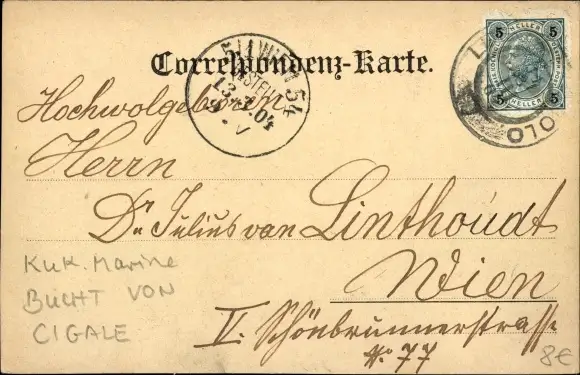 Correspondenz-Karte.
5/1 WIEN 54
BESTELLT
13.2.04
9-V
5 5
HELLER HELLER
5 5
LO
OLO
Hochwolgeboren
Herrn
Dr. Julius van Linthoudt
Wien
V. Schönbrunnerstrasse
No. 77
KuK. Marine
BUCHT VON
CIGALE
8€